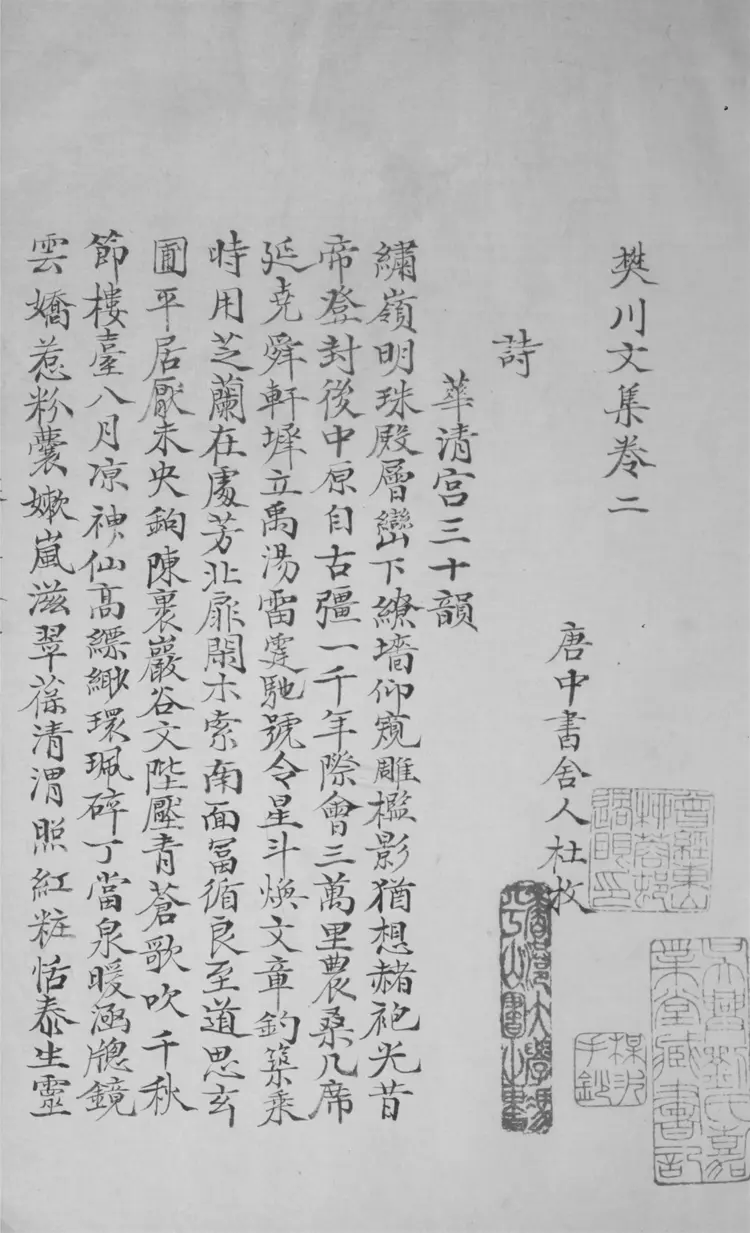 樊川文集卷二
唐中書舍人杜牧
詩
華清宫三十韻
繡嶺明珠殿層巒下繚墻仰窺雕檻影猶想赭袍光昔
帝登封後中原自古彊一千年際會三萬里農桑几席
延堯舜軒墀立禹湯雷霆馳號令星斗煥文章釣築乘
時用芝蘭在處芳北扉閑木索南面富循良至道思玄
圃平居厭未央鉤陳裹巖谷文陛壓青蒼歌吹千秋
節樓臺八月凉神仙高縹緲環珮碎丁當泉暖涵牕鏡
雲嬌惹粉囊嫩嵐滋翠葆清渭照紅粧恬泰生靈
曾經東山柳蓉邨過眼印
吳興劉氏嘉業堂臧書記
手鈔
香港大學馮平山圖書